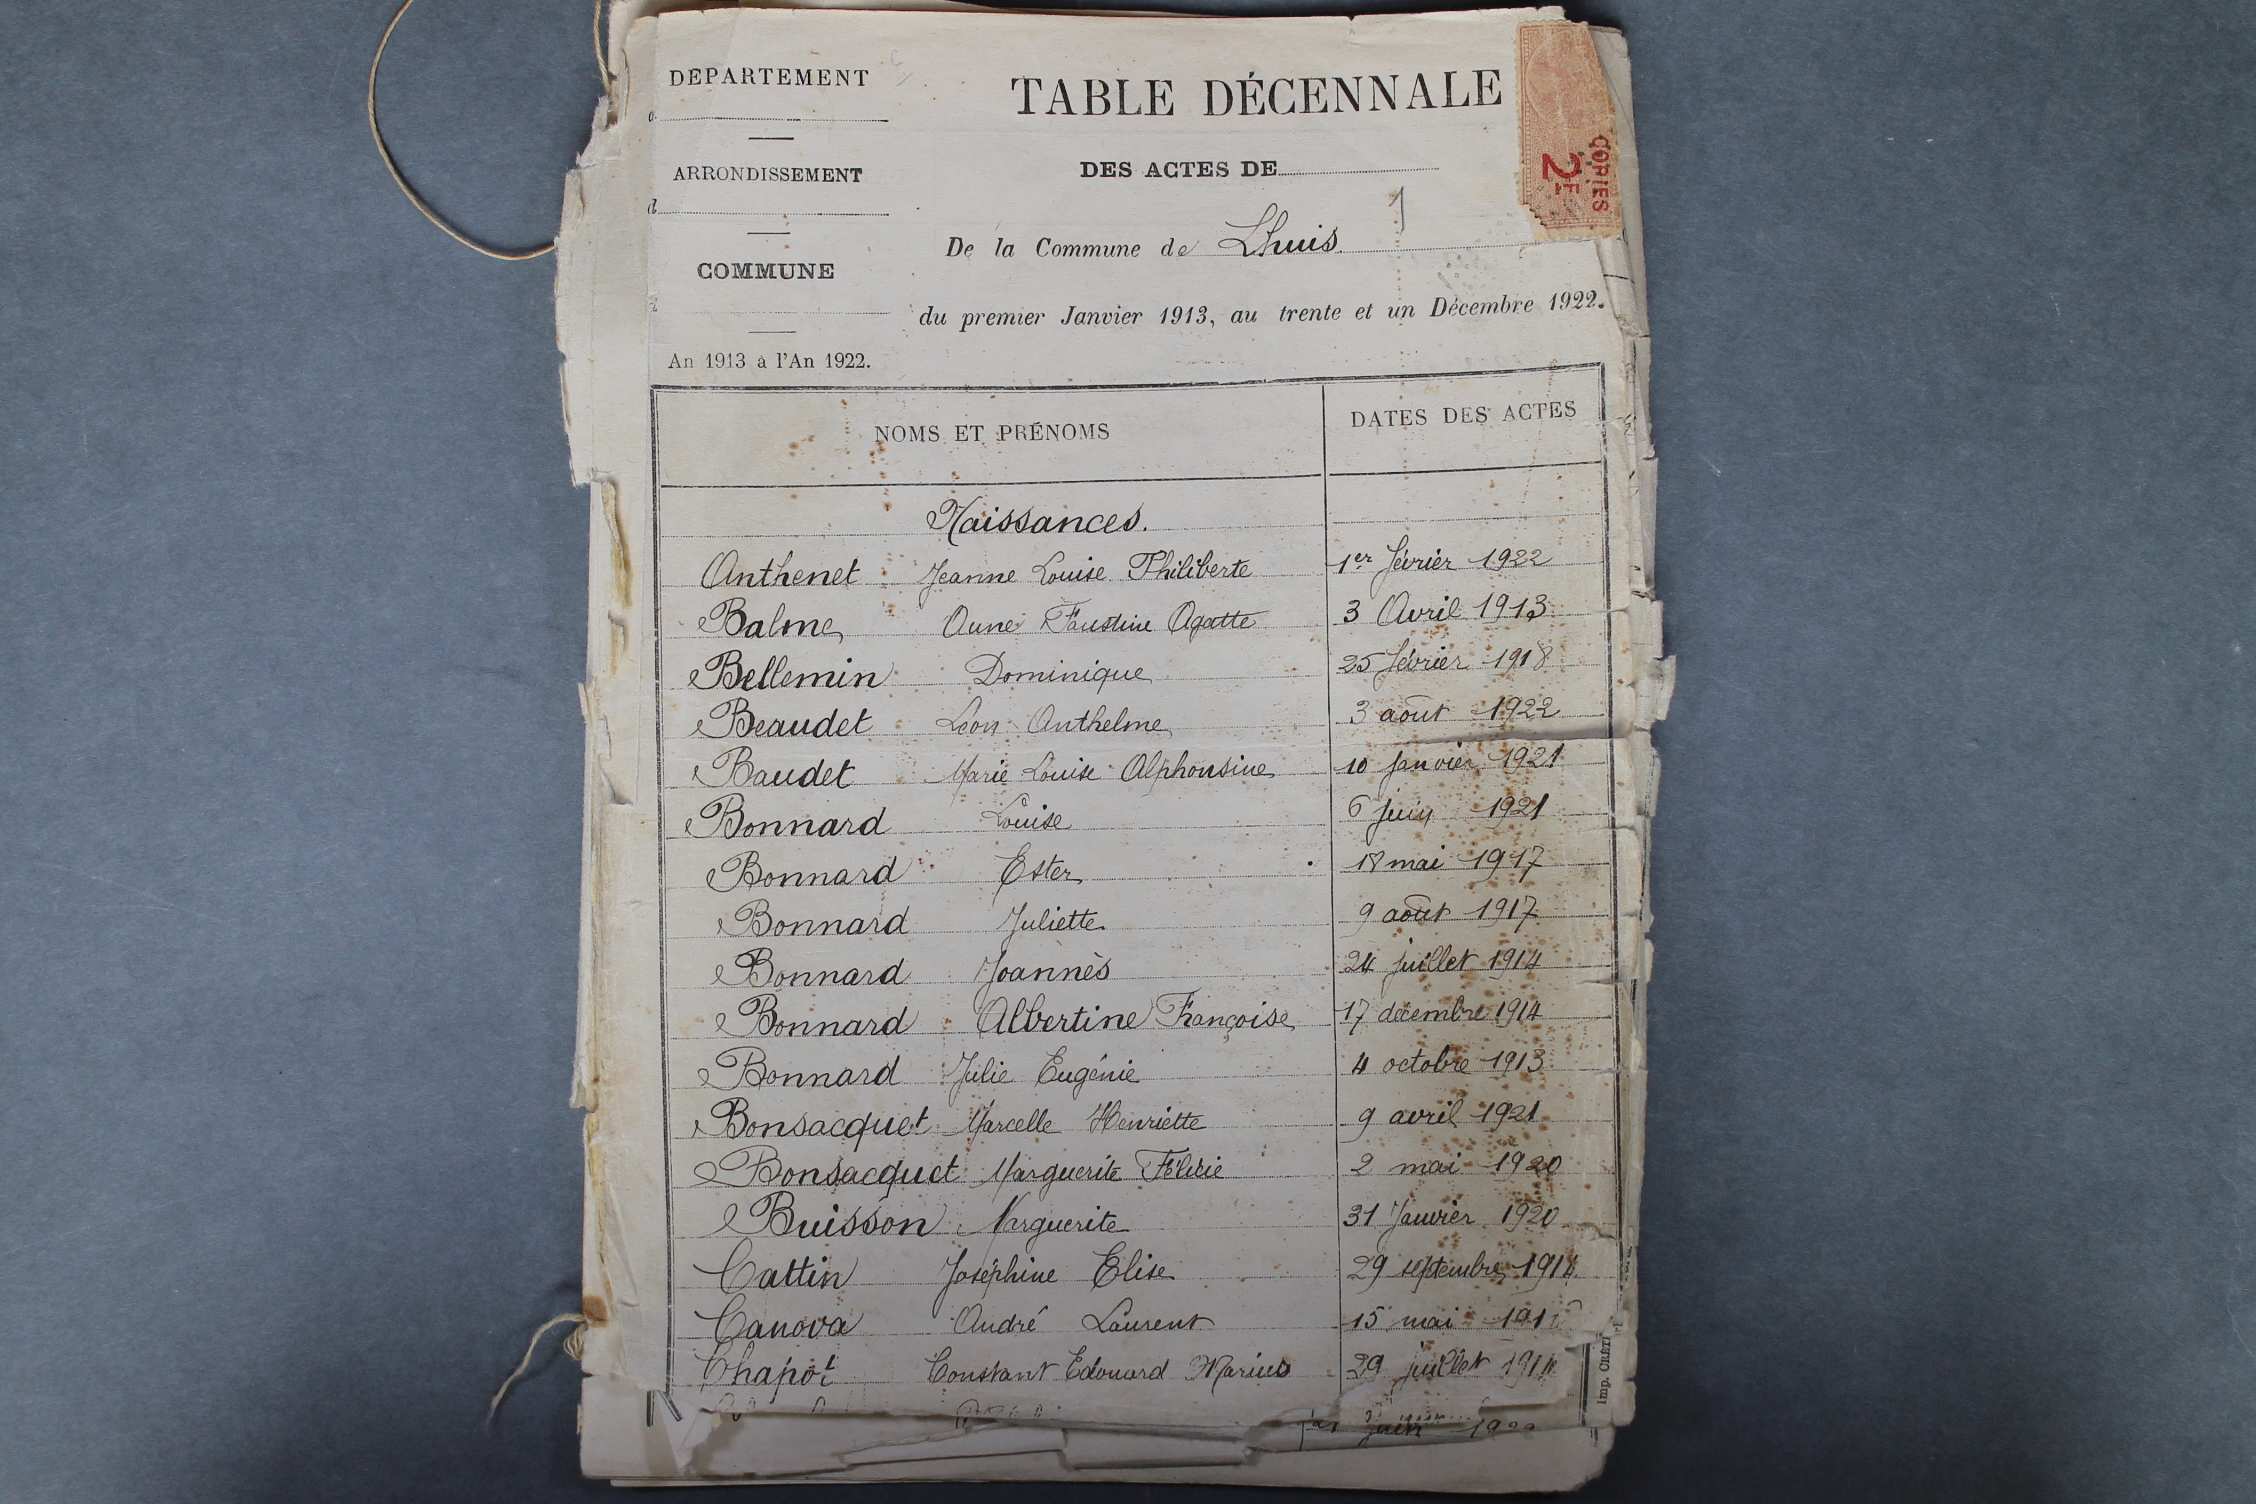 DÉPARTEMENT
d
ARRONDISSEMENT
d
COMMUNE
An 1913 à l'An 1922.
TABLE DÉCENNALE
DES ACTES DE
De la Commune de Lhuis.
du premier Janvier 1913, au trente et un Décembre 1922.
COPIES
2F
NOMS ET PRÉNOMS DATES DES ACTES
Naissances.
Anthenet Jeanne Louise Philiberte 1er février 1922
Balme Anne Faustine Agatte 3 Avril 1913
Bellemin Dominique 25 février 1918
Beaudet Léon Anthelme 3 août 1922
Baudet Marie Louise Alphonsine 10 janvier 1921
Bonnard Louise 6 juin 1921
Bonnard Ester 18 mai 1917
Bonnard Juliette 9 août 1917
Bonnard Joannès 24 juillet 1914
Bonnard Albertine Françoise 17 décembre 1914
Bonnard Julie Eugénie 4 octobre 1913
Bonsacquet Marcelle Henriette 9 avril 1921
Bonsacquet Marguerite Félicie 2 mai 1920
Buisson Marguerite 31 Janvier 1920
Cattin Joséphine Elise 29 septembre 1914
Canova André Laurent 15 mai
Chapot Constant Edouard Marius 29 juillet 1914
Imp. CRÉTI